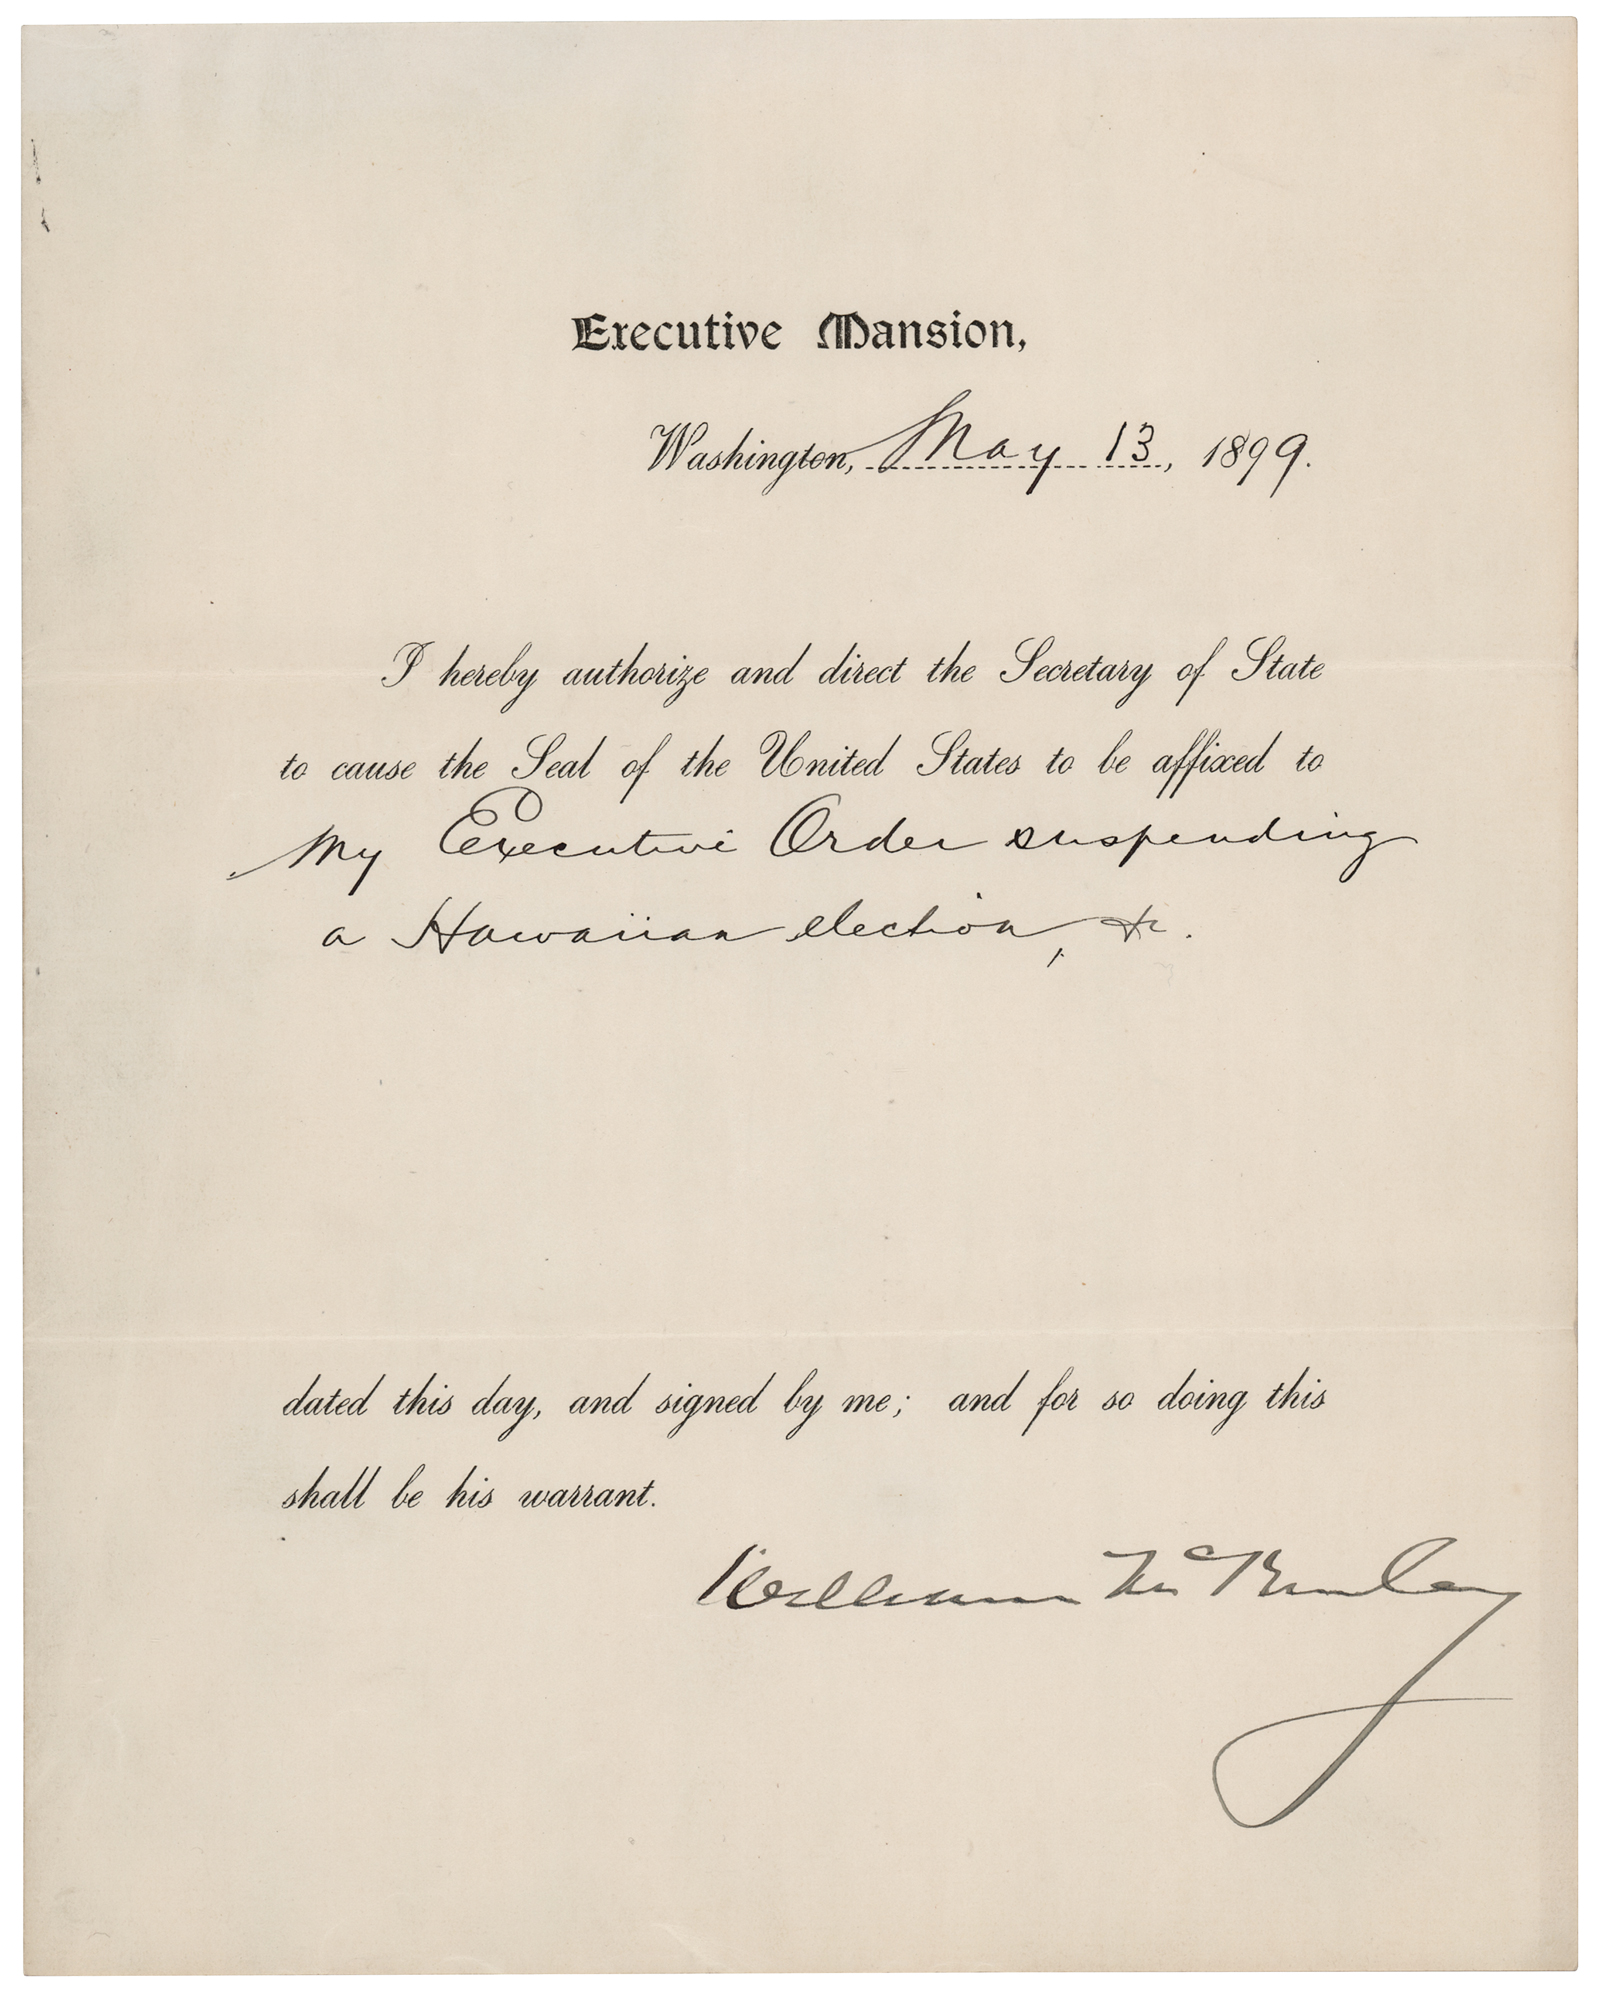 Executive Mansion,
Washington, May 13, 1899.
I hereby authorize and direct the Secretary of State
to cause the Seal of the United States to be affixed to
my Executive Order suspending
a Hawaiian election, &c.
dated this day, and signed by me; and for so doing this
shall be his warrant.
William McKinley